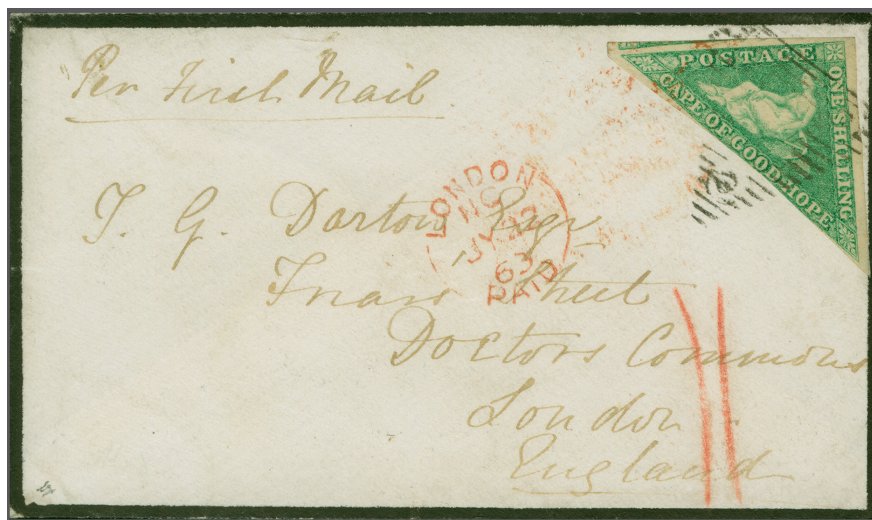 Per First Mail
POSTAGE
ONE SHILLING
CAPE OF GOOD HOPE
LONDON
JY
63
PAID
T. G. Darton Esqr
Friars Street
Doctors Commons
London
England